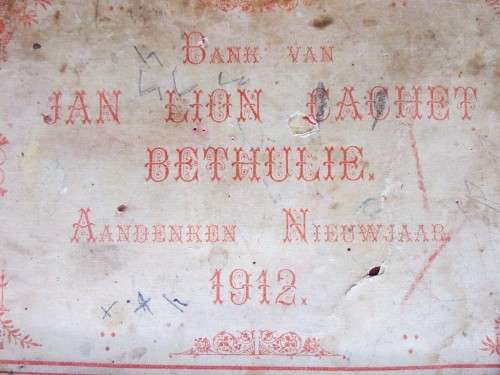 BANK VAN
JAN LION CACHET
BETHULIE.
AANDENKEN NIEUWJAAR
1912.